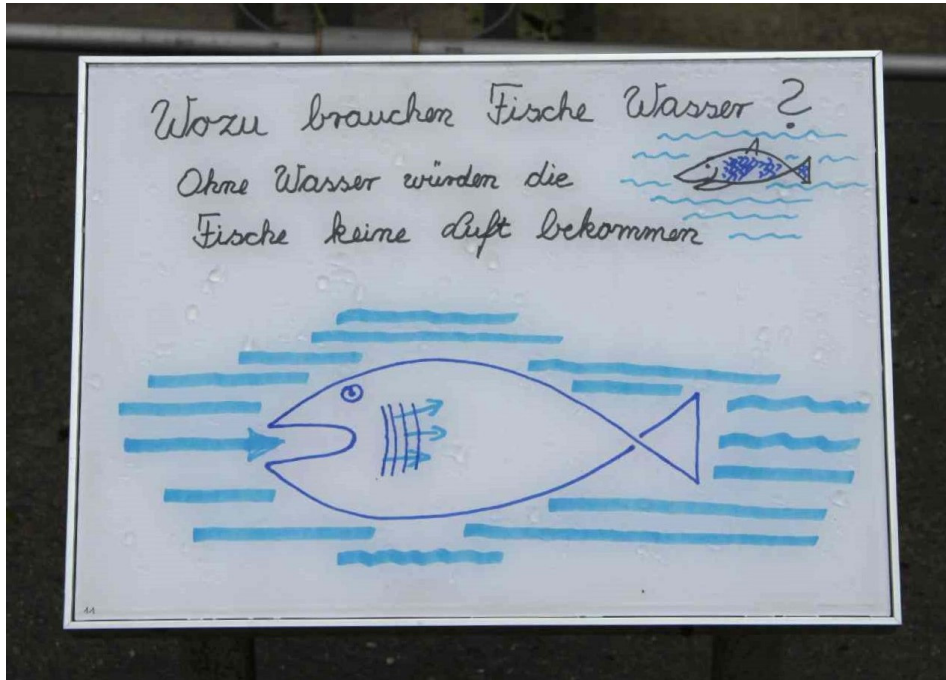 Wozu brauchen Fische Wasser?
Ohne Wasser würden die
Fische keine Luft bekommen
11